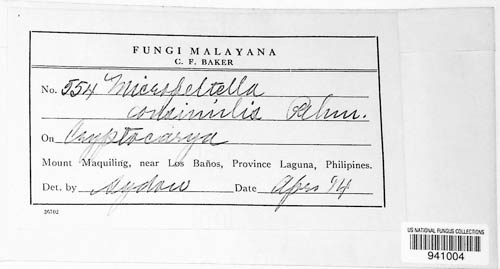 FUNGI MALAYANA
C. F. BAKER
No. 554 Micropeltella
consimilis Rehm.
On Cryptocarya
Mount Maquiling, near Los Baños, Province Laguna, Philipines.
Det. by Sydow Date Apr '14
26702
US NATIONAL FUNGUS COLLECTIONS
941004